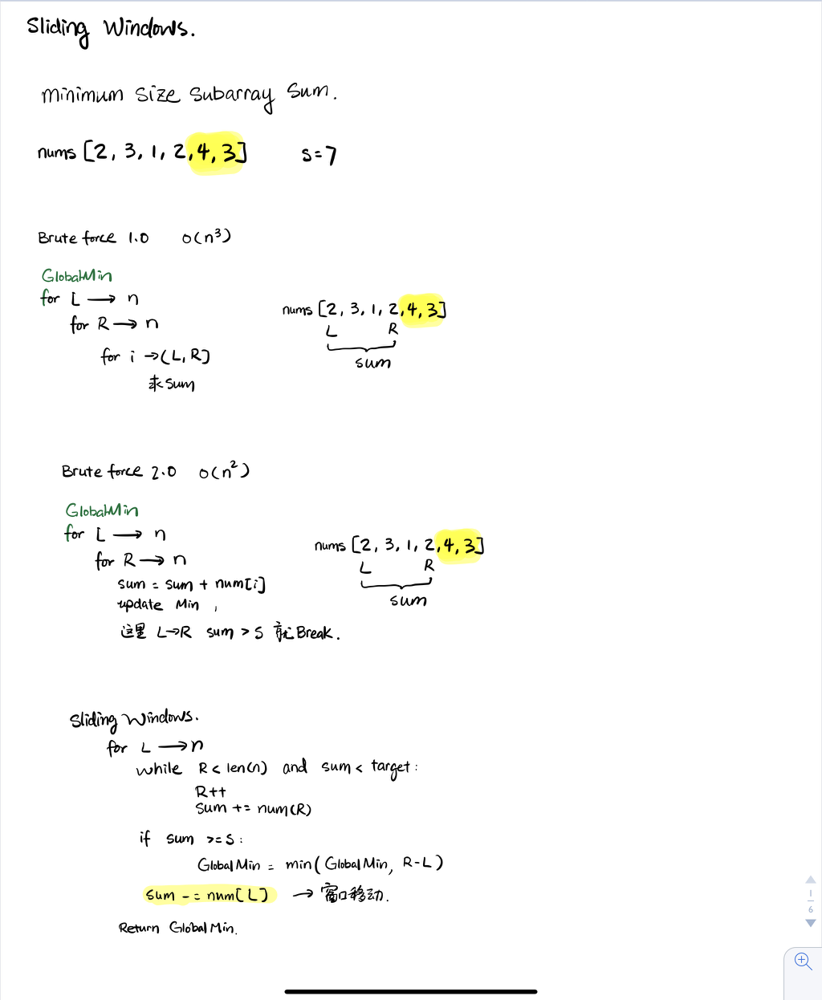 Sliding Windows.
minimum size subarray sum.
nums [2, 3, 1, 2, 4, 3] s=7
Brute force 1.0 o(n³)
GlobalMin
for L → n
for R → n
for i → (L, R]
求 sum
nums [2, 3, 1, 2, 4, 3]
L R
sum
Brute force 2.0 o(n²)
GlobalMin
for L → n
for R → n
sum = sum + num[i]
update Min ,
这里 L→R sum > S 就 Break.
nums [2, 3, 1, 2, 4, 3]
L R
sum
Sliding Windows.
for L → n
while R < len(n) and sum < target:
R++
Sum += num(R)
if sum >= S:
Global Min = min( Global Min, R-L )
sum -= num[L] → 窗口移动.
Return Global Min.
1
6